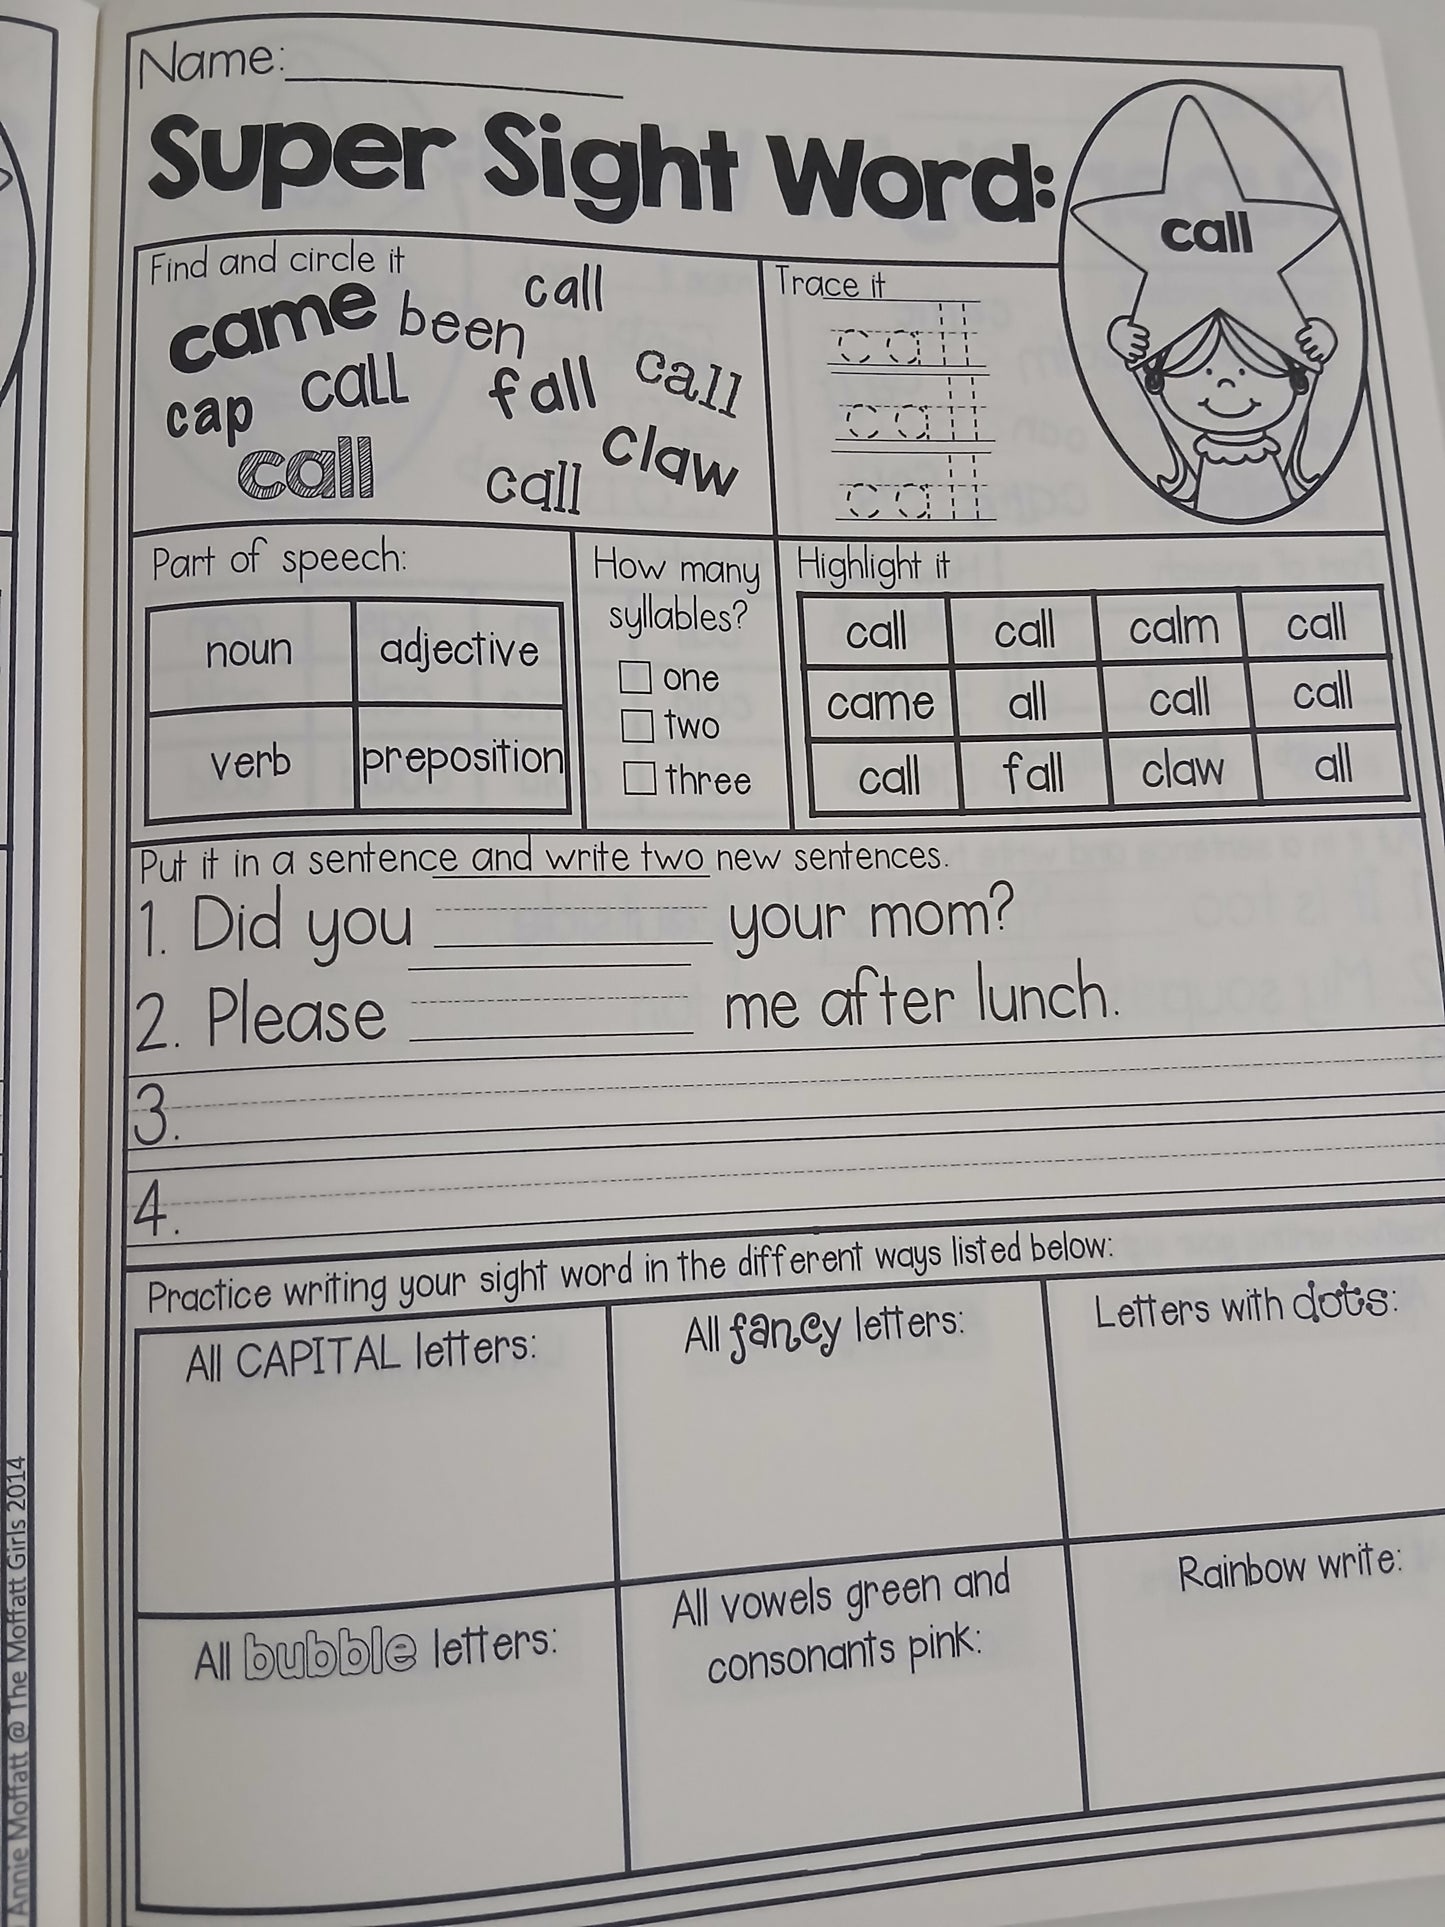 Name:
Super Sight Word:
call
Find and circle it
call
came been
call fall call
cap
claw
call call
Trace it
call
call
call
Part of speech:
noun adjective
verb preposition
How many
syllables?
one
two
three
Highlight it
call call calm call
came all call call
call fall claw all
Put it in a sentence and write two new sentences.
1. Did you your mom?
2. Please me after lunch.
3.
4.
Practice writing your sight word in the different ways listed below:
All CAPITAL letters:
All fancy letters:
Letters with dots:
All bubble letters:
All vowels green and
consonants pink:
Rainbow write:
Annie Moffatt @ The Moffatt Girls 2014